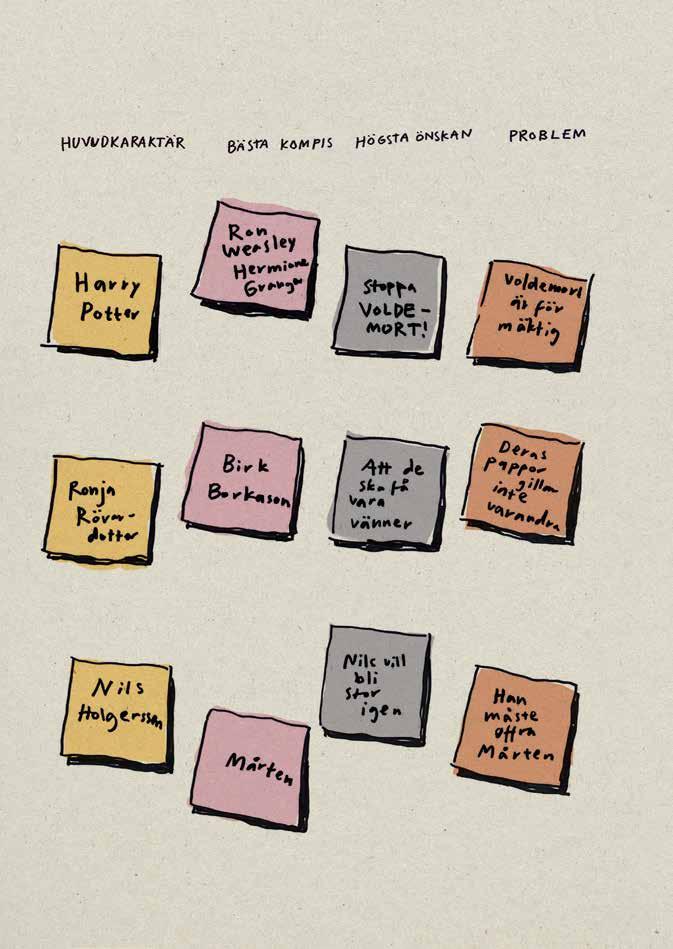 HUVUDKARAKTÄR BÄSTA KOMPIS HÖGSTA ÖNSKAN PROBLEM
Harry
Potter
Ron
Weasley
Hermione
Granger
Stoppa
VOLDE-
MORT!
Voldemort
är för
mäktig
Ronja
Rövar-
dotter
Birk
Borkason
Att de
ska få
vara
vänner
Deras
pappor
gillar
inte
varandra
Nils
Holgersson
Mårten
Nils vill
bli
stor
igen
Han
måste
offra
Mårten